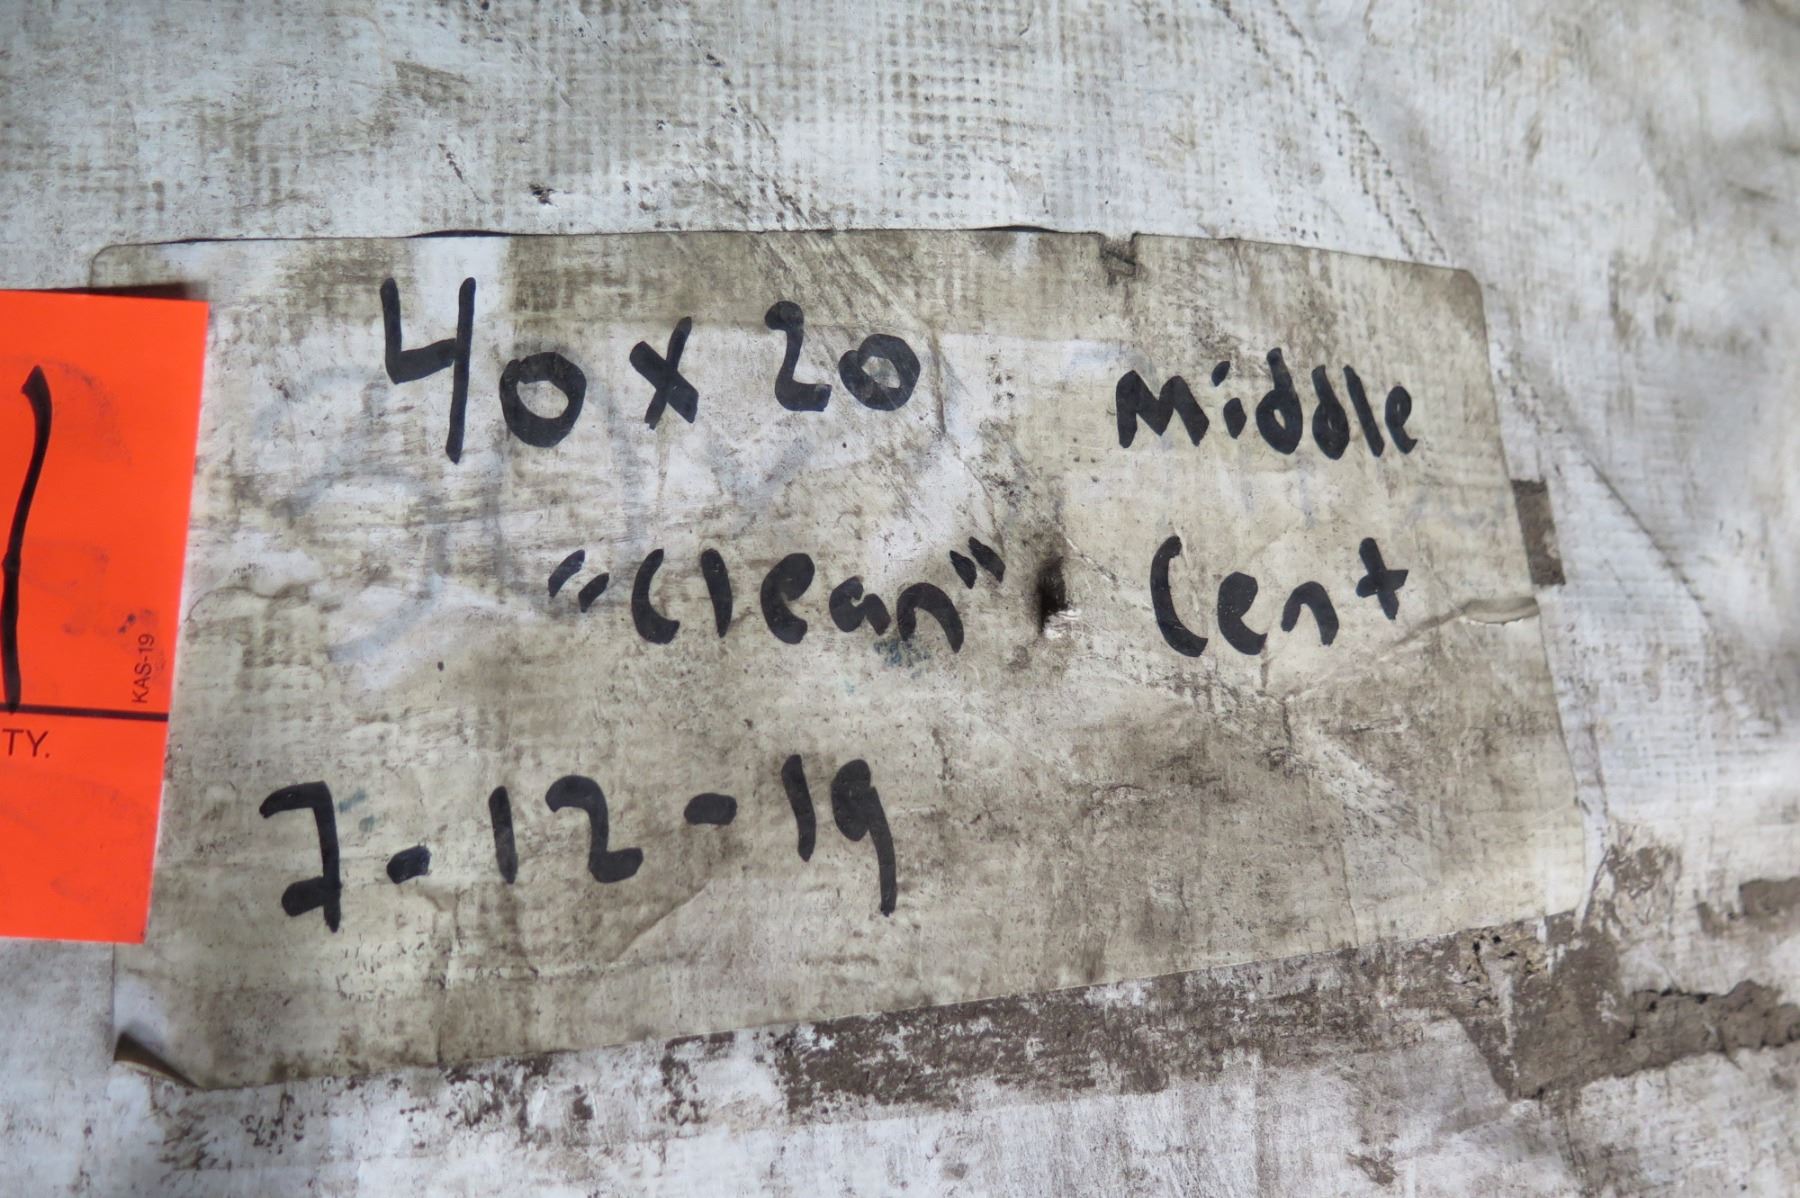 40 x 20 Middle
"Clean" Cent
7-12-19
1
KAS-19
TY.